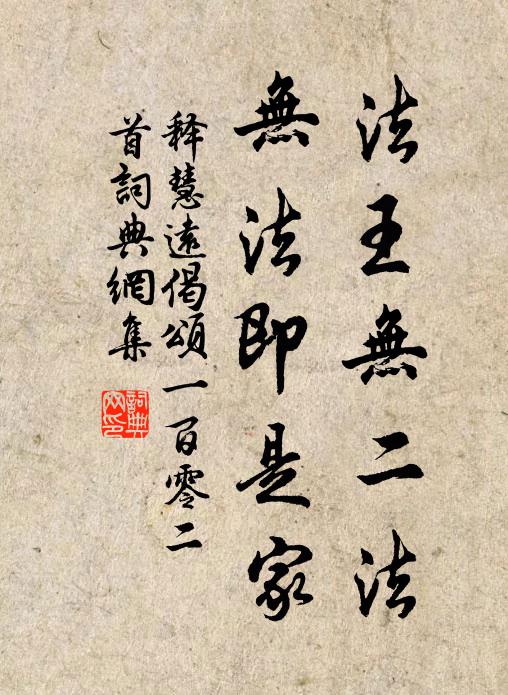 法王無二法
無法即是家
释慧遠偈頌一百零二
首詞典網集
詞典
网印